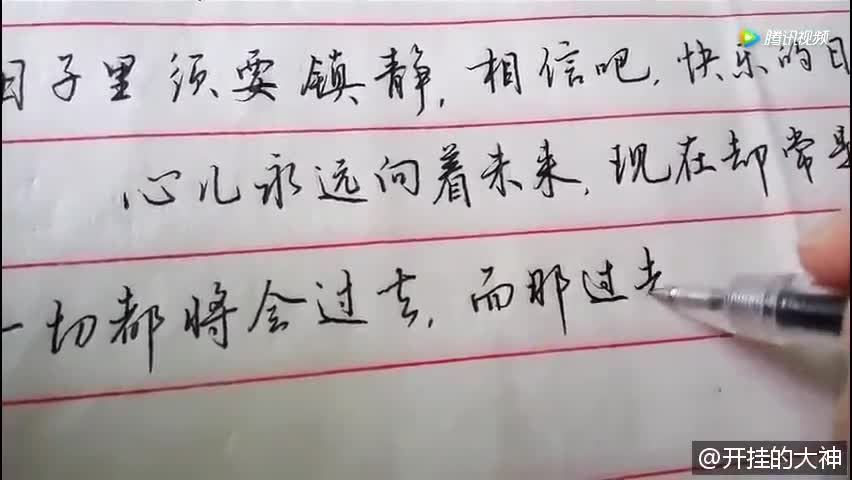 腾讯视频
日子里须要镇静，相信吧，快乐的日
心儿永远向着未来，现在却常是
一切都将会过去，而那过去
@开挂的大神